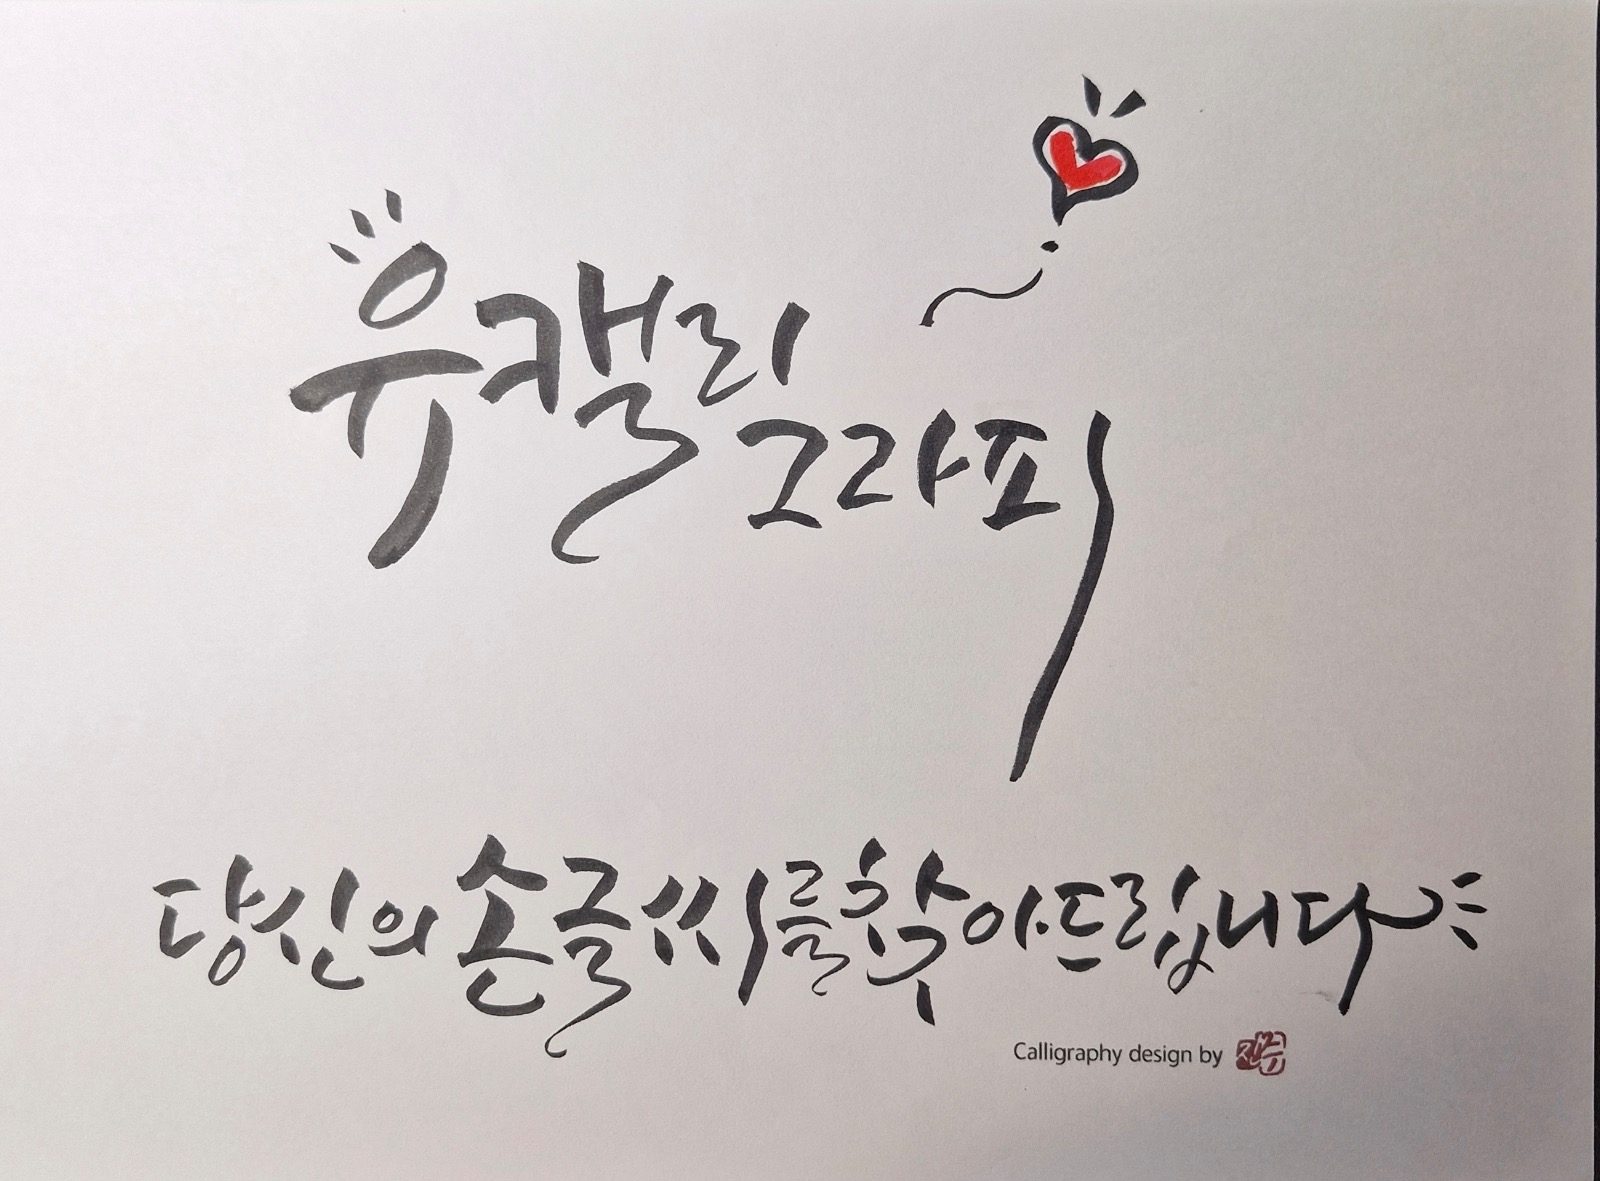 유캘리
그라피
당신의 손글씨를 찾아드립니다
Calligraphy design by